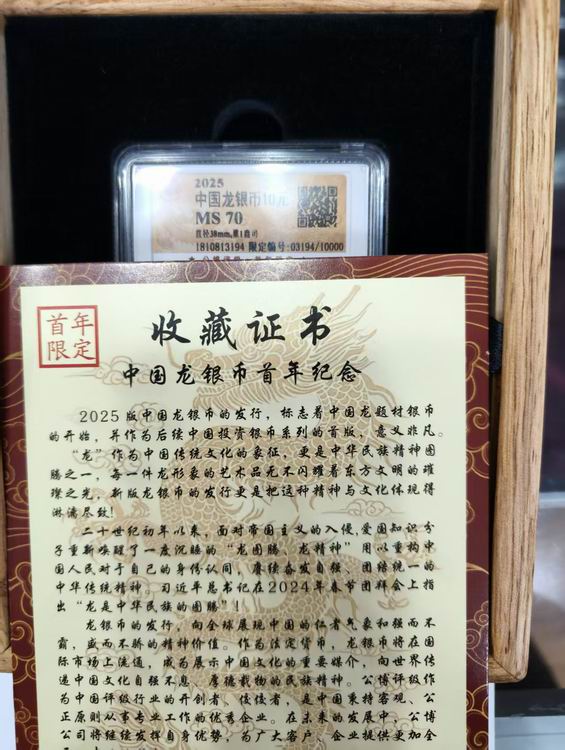 2025
中国龙银币10元
MS 70
直径38mm,重1盎司
1810813194 限定编号:03194/10000
首年
限定
收藏证书
中国龙银币首年纪念
2025版中国龙银币的发行，标志着中国龙题材银币
的开始，并作为后续中国投资银币系列的首版，意义非凡。
“龙”作为中国传统文化的象征，更是中华民族精神图
腾之一，每一件龙形象的艺术品无不闪耀着东方文明的璀
璨之光，新版龙银币的发行更是把这种精神与文化体现得
淋漓尽致!
二十世纪初年以来，面对帝国主义的入侵,爱国知识分
子重新唤醒了一度沉睡的“龙图腾、龙精神”用以重构中
国人民对于自己的身份认同，赓续奋发自强、团结统一的
中华传统精神。习近平总书记在2024年春节团拜会上指
出“龙是中华民族的图腾”!
龙银币的发行，向全球展现中国的仁者气象和强而不
霸，盛而不骄的精神价值。作为法定货币，龙银币将在国
际市场上流通，成为展示中国文化的重要媒介，向世界传
递中国文化自强不息、厚德载物的民族精神。公博评级作
为中国评级行业的开创者、佼佼者，是中国秉持客观、公
正原则从事专业工作的优秀企业。在未来的发展中，公博
公司将继续发挥自身优势，为广大客户、企业提供更加全